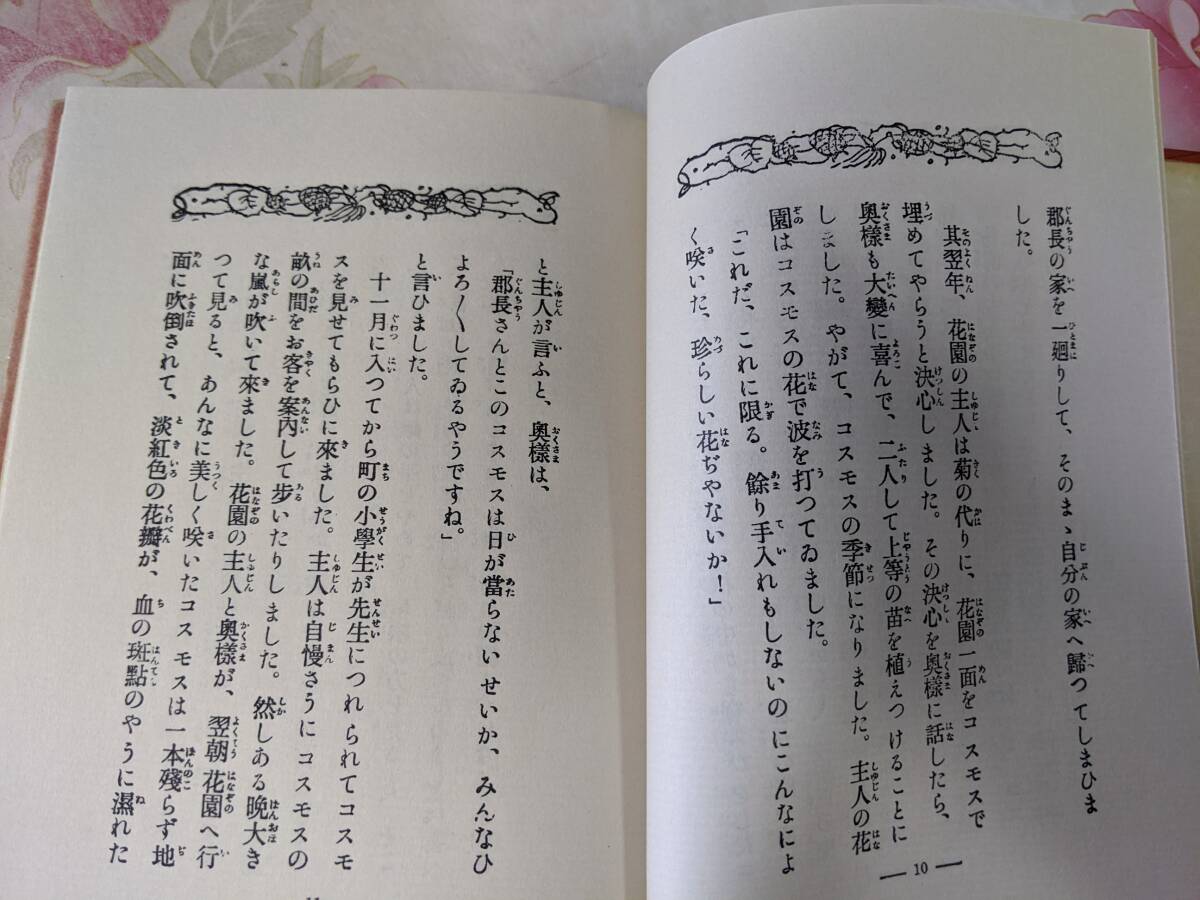 郡長の家を一廻りして、そのまゝ自分の家へ歸つてしまひま
した。
其翌年、花園の主人は菊の代りに、花園一面をコスモスで
埋めてやらうと決心しました。その決心を奥樣に話したら、
奥樣も大變に喜んで、二人して上等の苗を植えつけることに
しました。やがて、コスモスの季節になりました。主人の花
園はコスモスの花で波を打つてゐました。
「これだ、これに限る。餘り手入れもしないのにこんなによ
く咲いた、珍らしい花ぢやないか!」
― 10 ―
と主人が言ふと、奥樣は、
「郡長さんとこのコスモスは日が當らないせいか、みんなひ
よろ〳〵してゐるやうですね。」
と言ひました。
十一月に入つてから町の小學生が先生につれられてコスモ
スを見せてもらひに來ました。主人は自慢さうにコスモスの
畝の間をお客を案內して步いたりしました。然しある晩大き
な嵐が吹いて來ました。花園の主人と奥樣が、翌朝花園へ行
つて見ると、あんなに美しく咲いたコスモスは一本殘らず地
面に吹倒されて、淡紅色の花瓣が、血の斑點のやうに濡れた